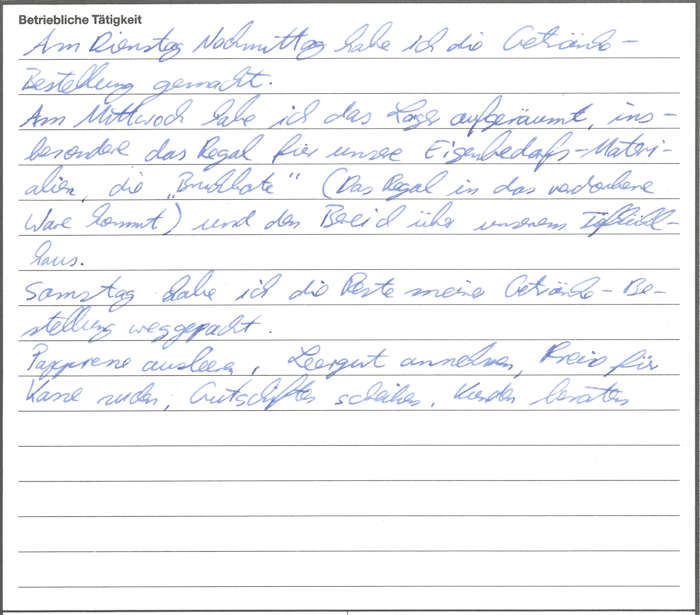 Betriebliche Tätigkeit
Am Dienstag Nachmittag habe ich die Getränke-
Bestellung gemacht.
Am Mittwoch habe ich das Lager aufgeräumt, ins-
besondere das Regal für unsere Eigenbedarfs-Materi-
alien, die „Bruchkote“ (Das Regal in das verdorbene
Ware kommt) und den Bereich über unserem Tiefkühl-
haus.
Samstag habe ich die Reste meiner Getränke-Be-
stellung weggepackt.
Papprene ausleeren, Leergut annehmen, Preis für
Kasse suchen, Gutschriften schreiben, Kunden beraten